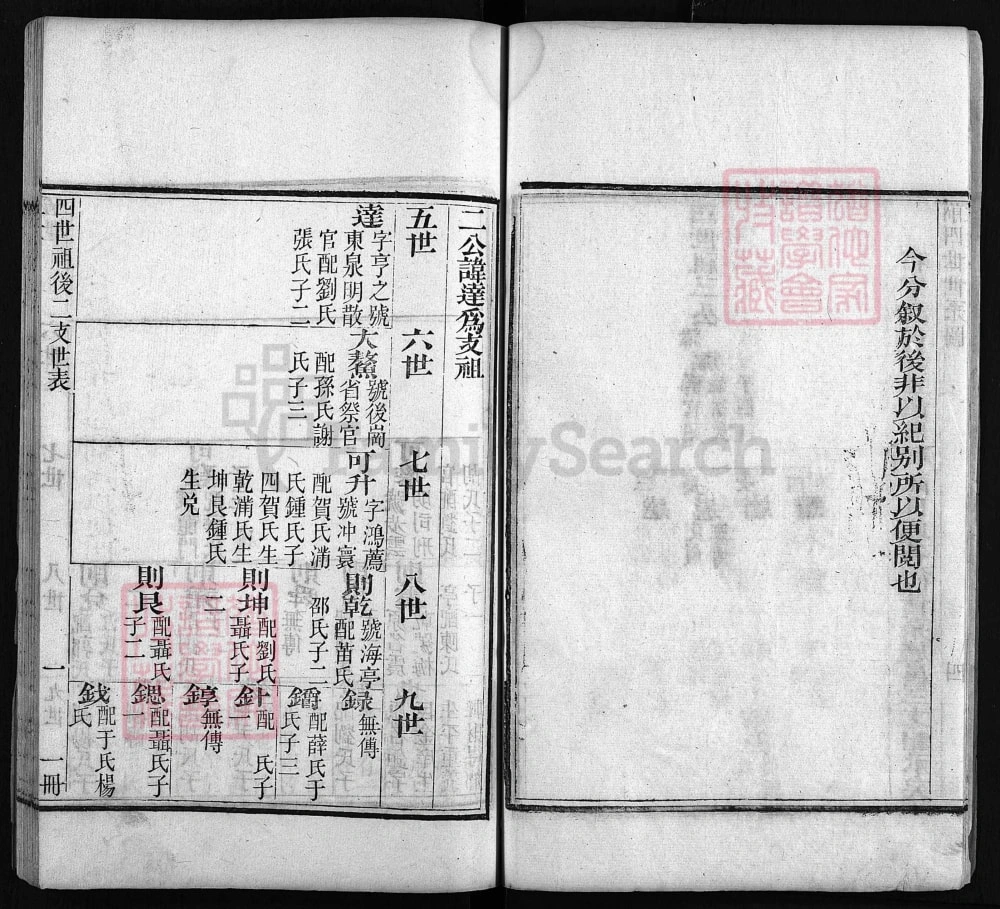 今分叙於後非以紀別所以便閱也
二公諱達爲支祖
五世
六世
七世
八世
九世
達
字亨之號
東泉明散
官配劉氏
張氏子二
大鰲
號後崗
省祭官
配孫氏謝
氏子三
可升
字鴻薦
號冲寰
配賀氏㴖
氏鍾氏子
四賀氏生
乾㴖氏生
坤艮鍾氏
生兑
則乾
號海亭
配苖氏
邵氏子二
則坤
配劉氏
聶氏子
二
則艮
配聶氏
子二
録
無傳
鑘
配薛氏于
氏子三
針
配 氏子
一
錞
無傳
鍶
配聶氏子
一
錢
配于氏楊
氏
四世祖後二支世表
一
一冊
FamilySearch